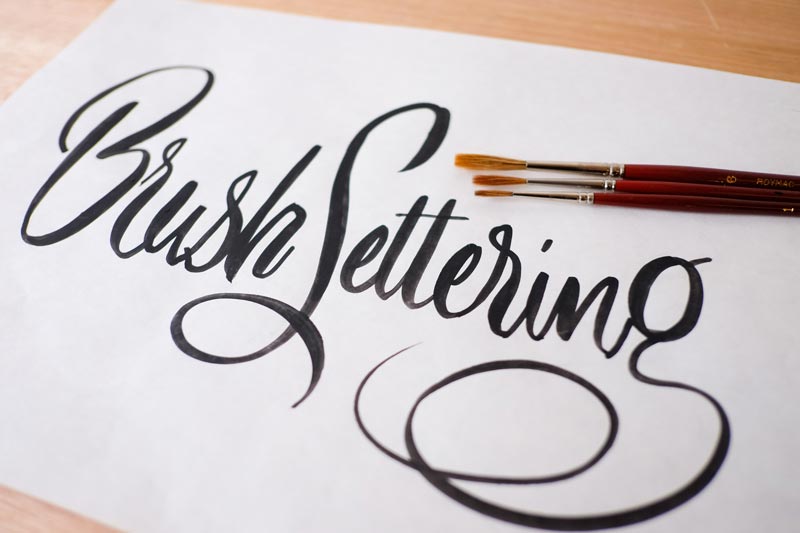 Brush Lettering
6 ROYMAC
1